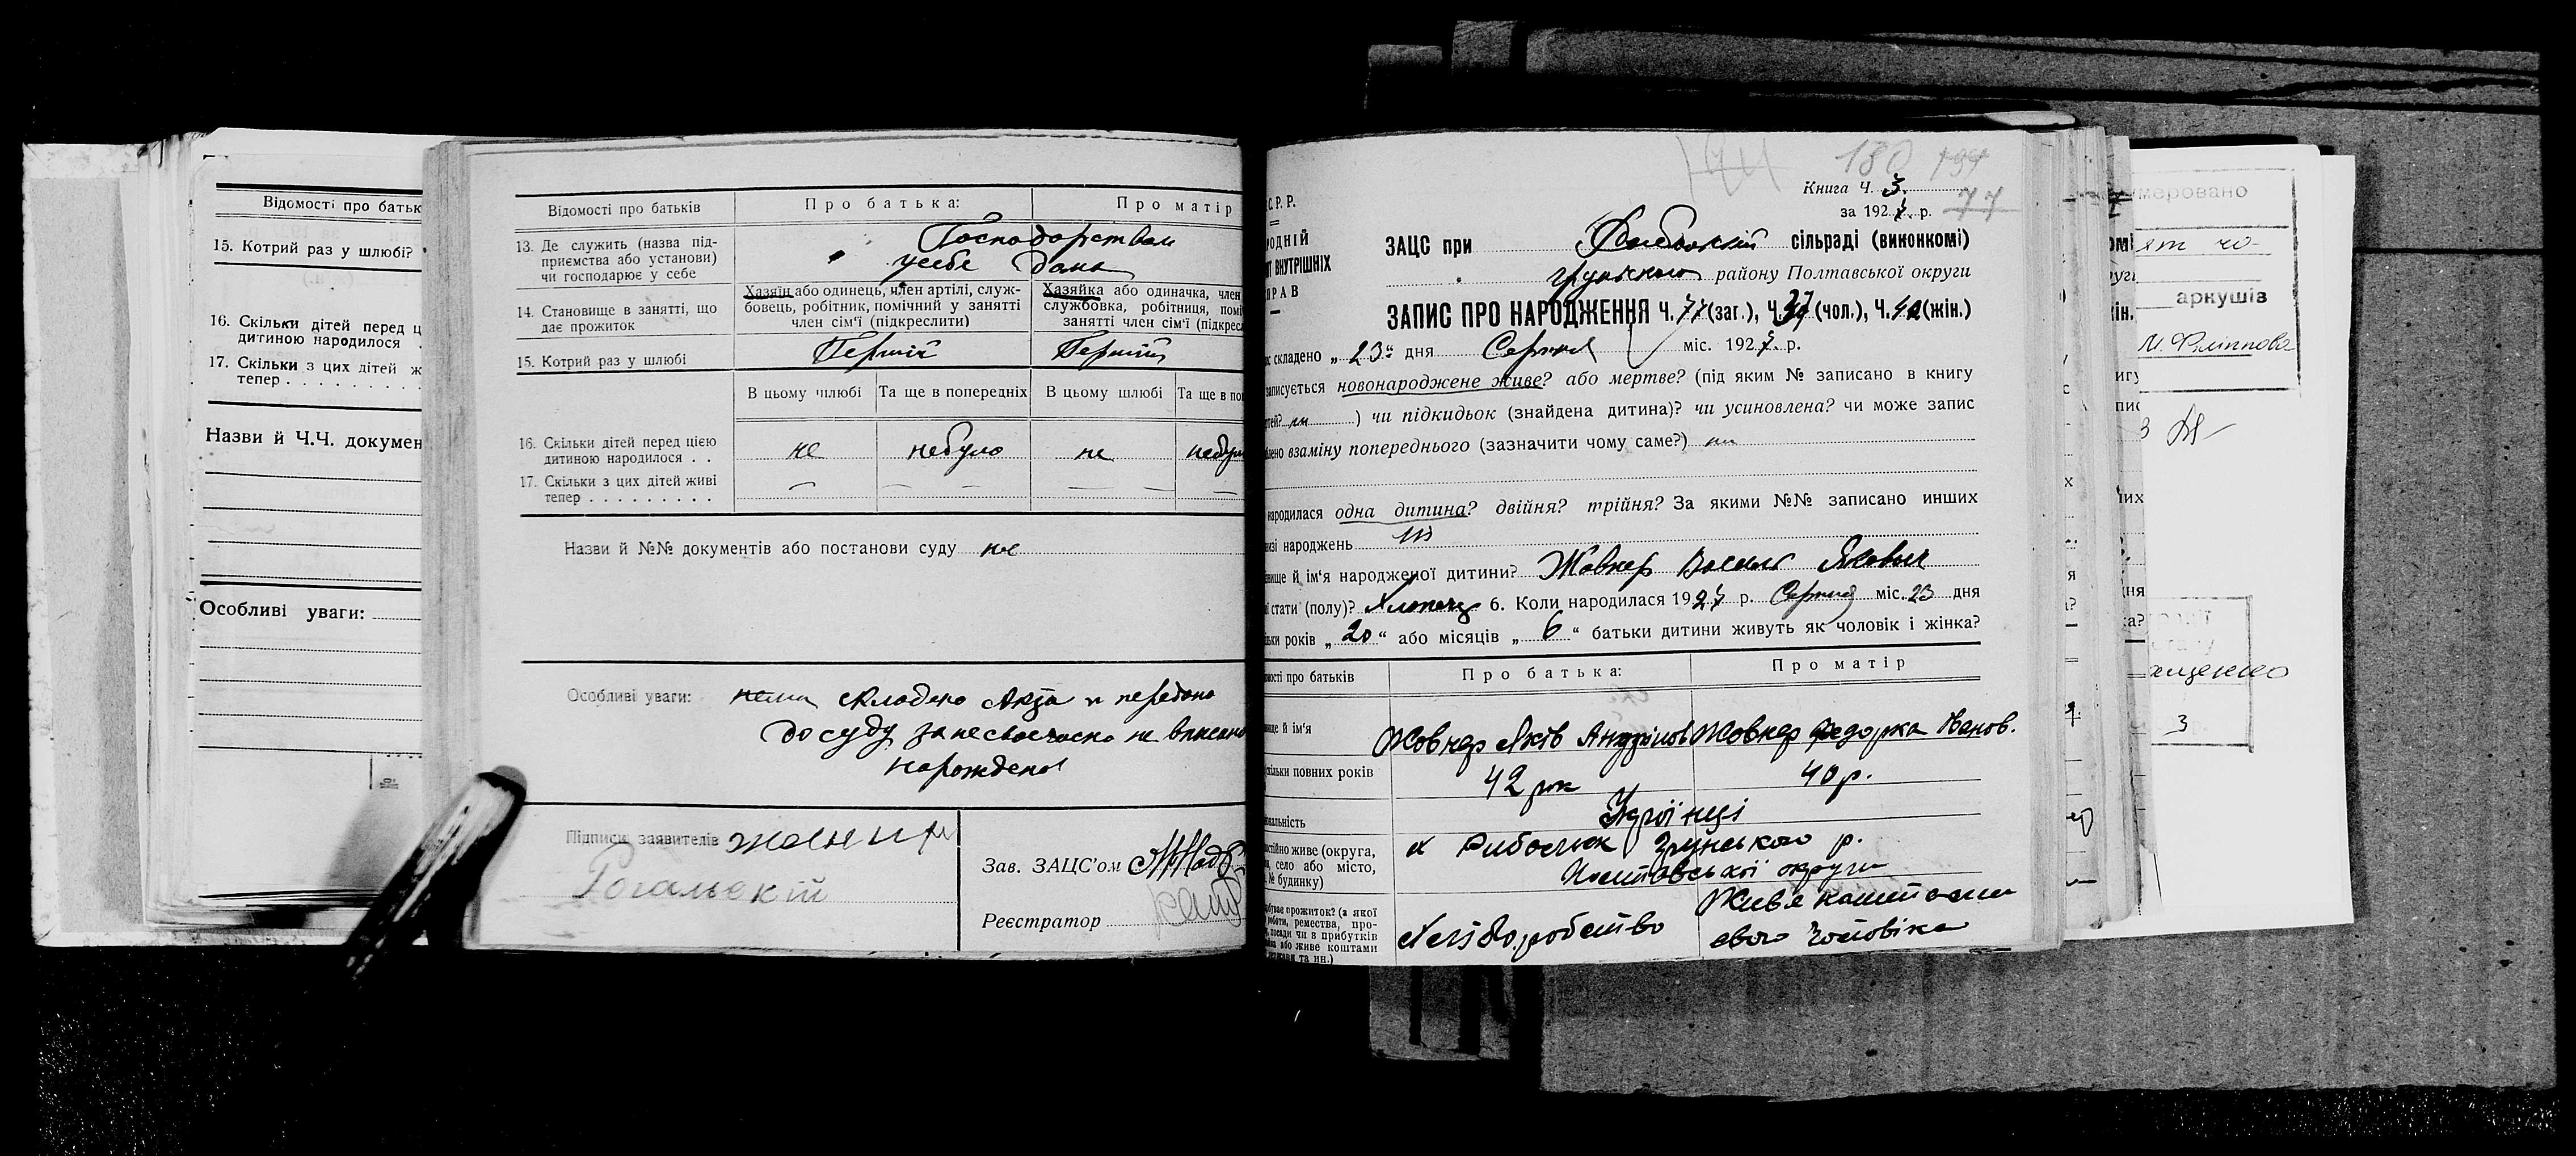 Відомості про батьк
15. Котрий раз у шлюбі?
16. Скільки дітей перед ц
дитиною народилося
17. Скільки з цих дітей ж
тепер
Назви й Ч.Ч. докумен
Особливі уваги:
Відомості про батьків
Про батька:
Про матір
13. Де служить (назва під-
приємства або установи)
чи господарює у себе
Господарством
усебе дома
14. Становище в занятті, що
дає прожиток
Хазяїн або одинець, член артілі, служ-
бовець, робітник, помічний у занятті
член сім'ї (підкреслити)
Хазяйка або одиначка, член
службовка, робітниця, помі
занятті член сім'ї (підкресл
15. Котрий раз у шлюбі
Первий
Первий
В цьому шлюбі Та ще в попередніх В цьому шлюбі Та ще в поп
16. Скільки дітей перед цією
дитиною народилося . .
не небуло не небул
17. Скільки з цих дітей живі
тепер
Назви й №№ документів або постанови суду не
Особливі уваги: нема складено Акта и передано
до суду за несвоечасно не вписано
нарождено
Підписи заявителів
Рогальскій
Зав. ЗАЦС'ом
Реєстратор
180
Книга Ч. 3.
за 1927 р. 77
С. Р. Р.
РОДНІЙ
АТ ВНУТРІШНІХ
ПРАВ
ЗАЦС при сільраді (виконкомі)
грунського району Полтавської округи
ЗАПИС ПРО НАРОДЖЕННЯ Ч. 77 (заг.), Ч. 37 (чол.), Ч. 40 (жін.)
складено „23" дня Серпня міс. 1927 р.
записується новонароджене живе? або мертве? (під яким № записано в книгу
) чи підкидьок (знайдена дитина)? чи усиновлена? чи може запис
взаміну попереднього (зазначити чому саме?) ни
народилася одна дитина? двійня? трійня? За якими №№ записано инших
народжень
вище й ім'я народженої дитини? Жовнер Василь Якович
стати (полу)? Хлопець 6. Коли народилася 1927 р. Серпня міс. 23 дня
ьки років „20" або місяців „6" батьки дитини живуть як чоловік і жінка?
мості про батьків
Про батька:
Про матір
ище й ім'я
Жовнер Яків Андрійов
Жовнер Федорка Іванов.
скільки повних років
42 рок
40 р.
ональність
Українці
живе (округа,
село або місто,
№ будинку)
Грунського р.
Полтавської округи
прожиток? (з якої
роботи, ремества, про-
посади чи в прибутків
або живе коштами
та ин.)
Хліборобство
Живе коштами
свого чоловіка
меровано
аркушів
М. Філіппова
3
3